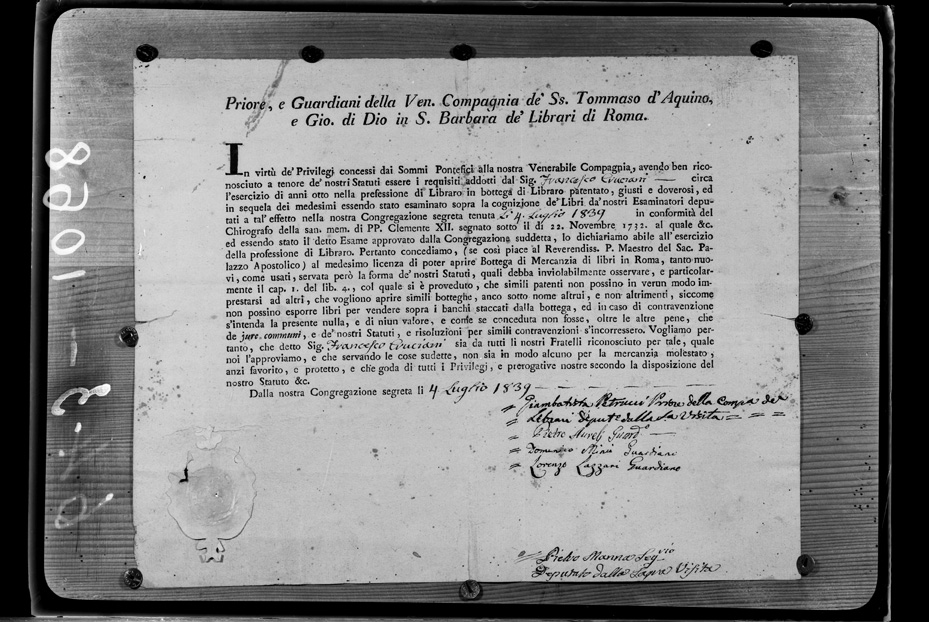 Priore, e Guardiani della Ven. Compagnia de' Ss. Tommaso d'Aquino,
e Gio. di Dio in S. Barbara de' Librari di Roma.
In virtù de' Privilegi concessi dai Sommi Pontefici alla nostra Venerabile Compagnia, avendo ben rico-
nosciuto a tenore de' nostri Statuti essere i requisiti addotti dal Sig. Francesco Cruciani — circa
l'esercizio di anni otto nella prefessione di Libraro in bottega di Libraro patentato, giusti e doverosi, ed
in sequela dei medesimi essendo stato esaminato sopra la cognizione de' Libri da' nostri Esaminatori depu-
tati a tal' effetto nella nostra Congregazione segreta tenuta li 4. Luglio 1839 in conformità del
Chirografo della san. mem. di PP. Clemente XII. segnato sotto il dì 22. Novembre 1732. al quale &c.
ed essendo stato il detto Esame approvato dalla Congregazione suddetta, lo dichiariamo abile all'esercizio
della professione di Libraro. Pertanto concediamo, (se così piace al Reverendiss. P. Maestro del Sac. Pa-
lazzo Apostolico) al medesimo licenza di poter aprire Bottega di Mercanzia di libri in Roma, tanto nuo-
vi, come usati, servata però la forma de' nostri Statuti, quali debba inviolabilmente osservare, e particolar-
mente il cap. 1. del lib. 4., col quale si è proveduto, che simili patenti non possino in verun modo im-
prestarsi ad altri, che vogliono aprire simili botteghe, anco sotto nome altrui, e non altrimenti, siccome
non possino esporre libri per vendere sopra i banchi staccati dalla bottega, ed in caso di contravenzione
s'intenda la presente nulla, e di niun valore, e come se conceduta non fosse, oltre le altre pene, che
de jure communi, e de' nostri Statuti, e risoluzioni per simili contravenzioni s'incorressero. Vogliamo per-
tanto, che detto Sig. Francesco Cruciani sia da tutti li nostri Fratelli riconosciuto per tale, quale
noi l'approviamo, e che servando le cose sudette, non sia in modo alcuno per la mercanzia molestato,
anzi favorito, e protetto, e che goda di tutti i Privilegi, e prerogative nostre secondo la disposizione del
nostro Statuto &c.
Dalla nostra Congregazione segreta li 4 Luglio 1839
Giambatista Petrucci Priore della Compia de'
Librari deputo dalla Sa Visita
Pietro Aurelj Guardo
Domenico Guardiano
Lorenzo Lazzari Guardiano
Pietro Manna Segrio
Deputato dalla Sagra Visita
1098